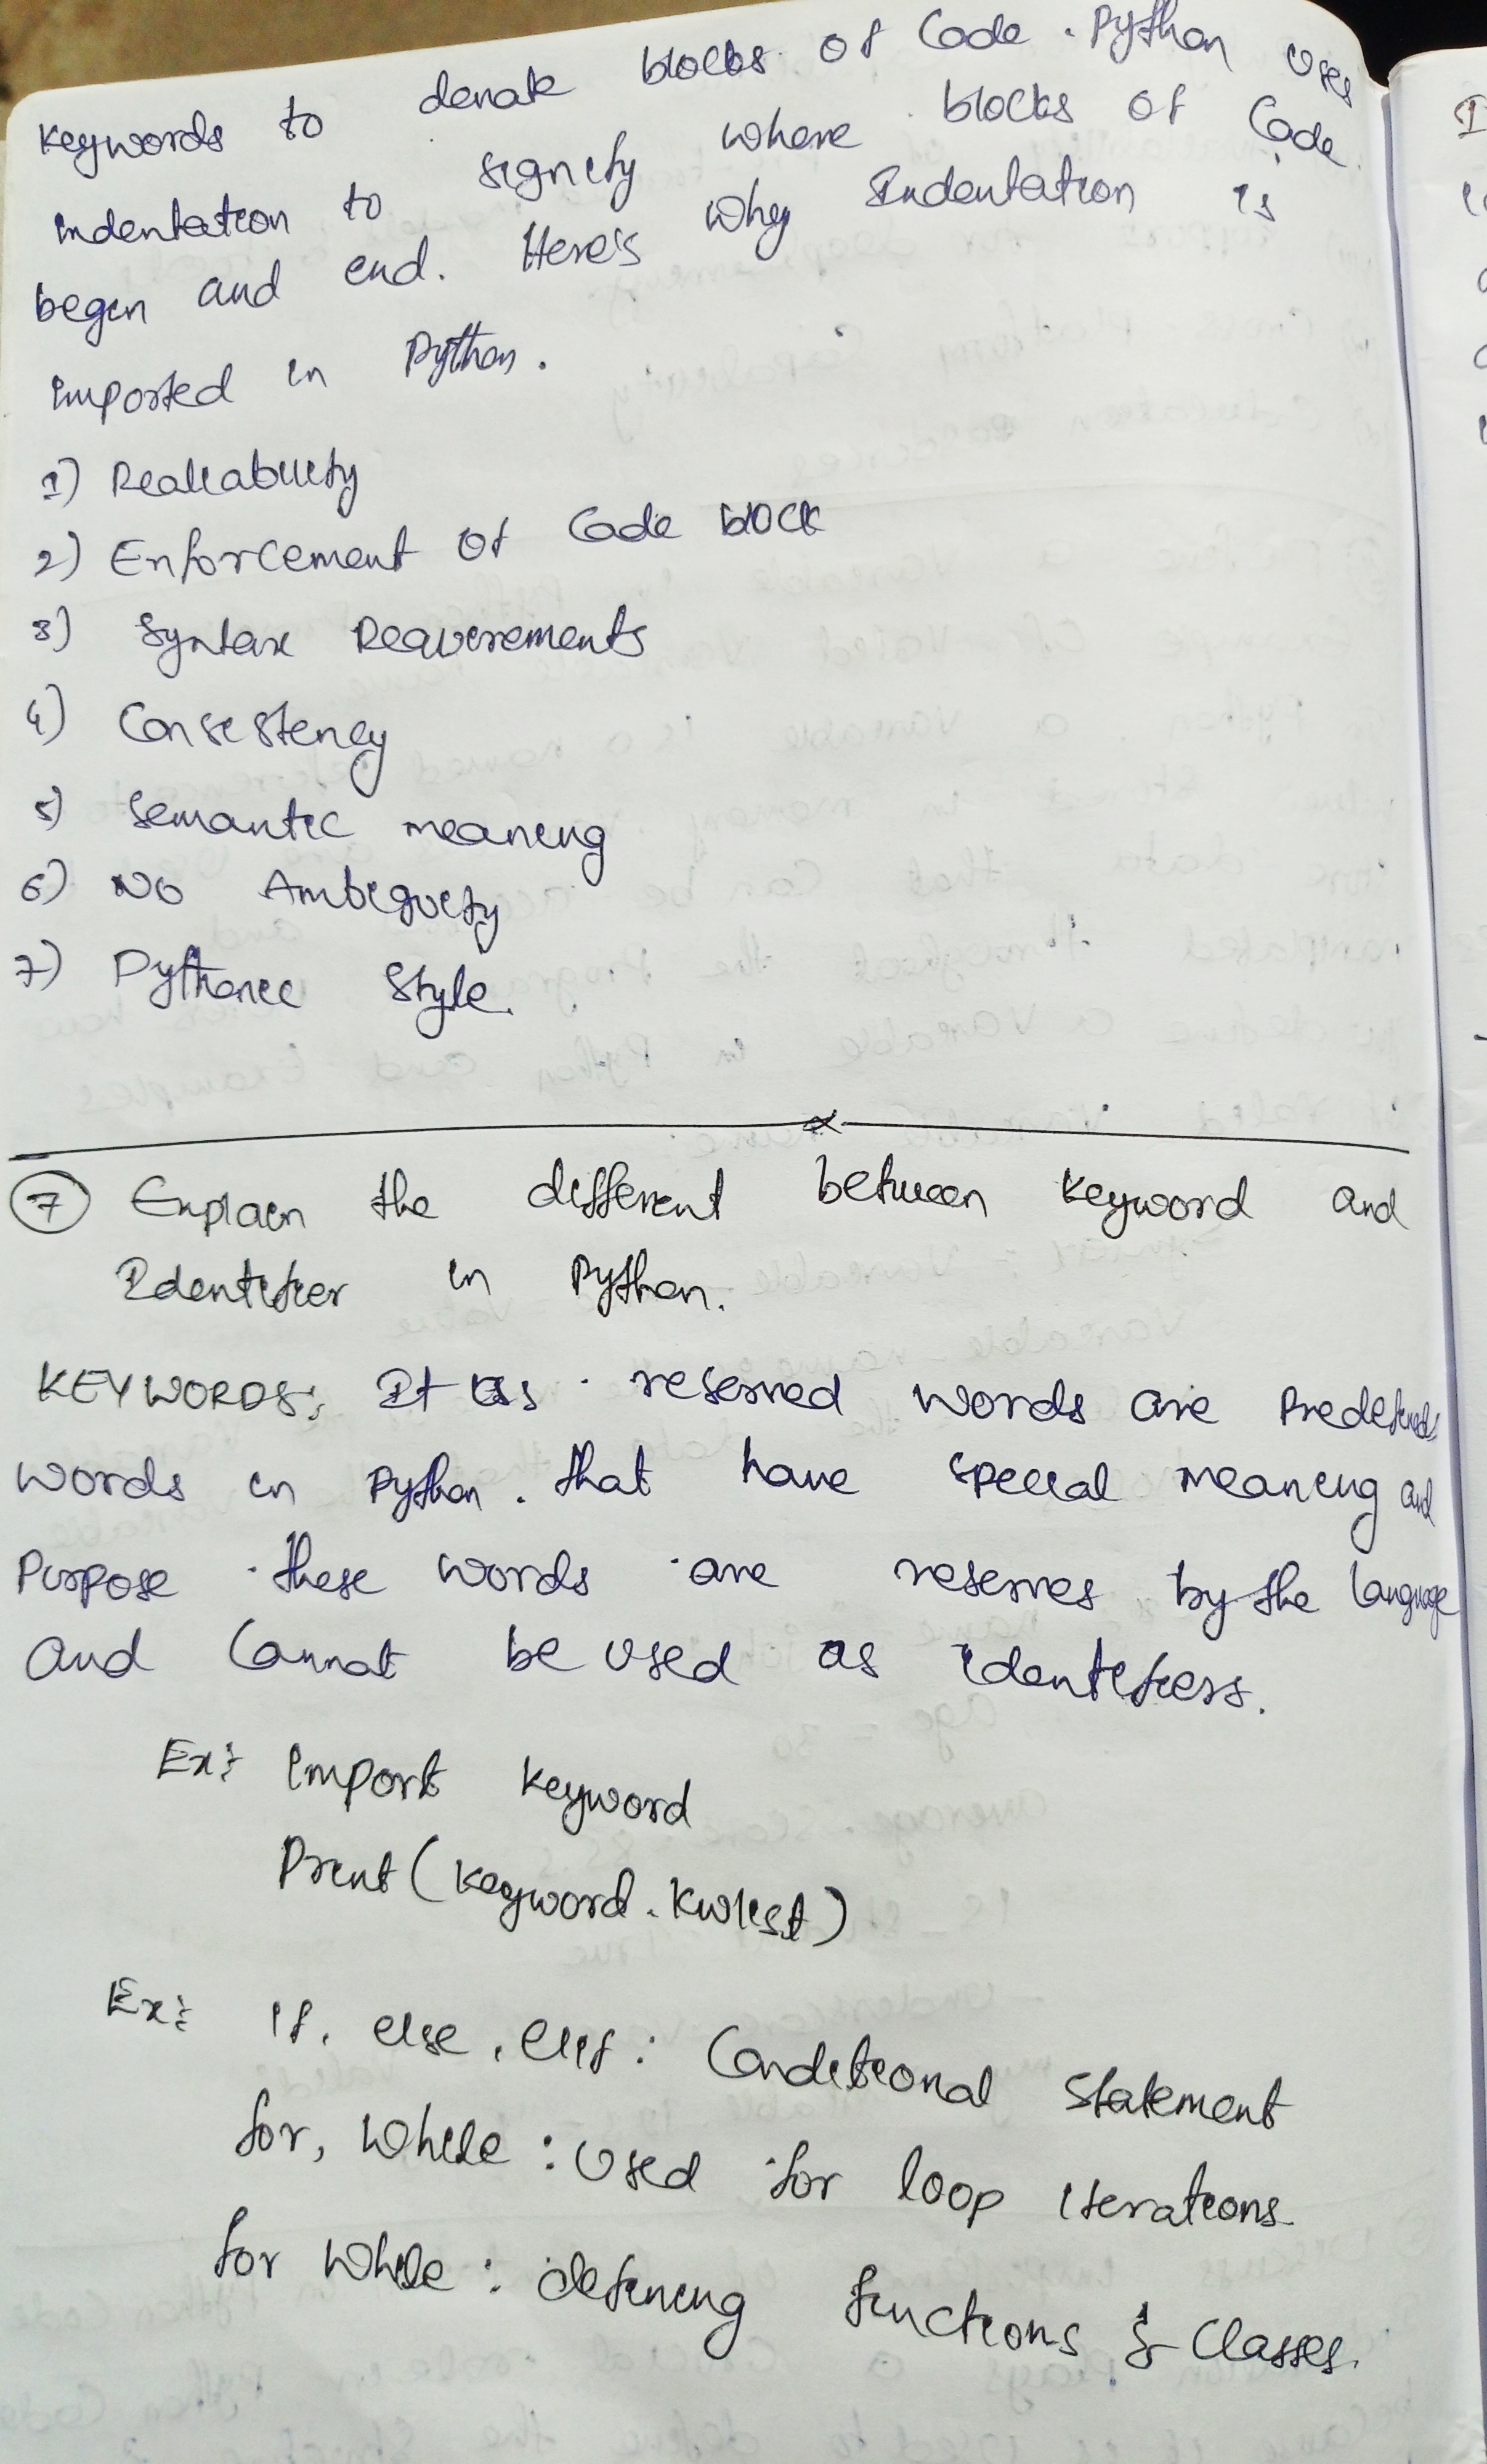 Keywords to denote blocks of Code. Python uses
indentation to signify where blocks of Code
begin and end. Here's why Indentation is
imported in Python.
1) Readability
2) Enforcement of Code block
3) Syntax Requirements
4) Consistency
5) Semantic meaning
6) No Ambiguity
7) Pythonic Style.
7 Explain the different between keyword and
Identifier in Python.
KEYWORDS: It is reserved words are Predefined
words in Python. that have special meaning and
Purpose these words are reserves by the language
and cannot be used as identifiers.
Ex: import keyword
Print(keyword.kwlist)
Ex: if, else, elif: Conditional statement
for, while: Used for loop iterations
for while: defining functions & classes.